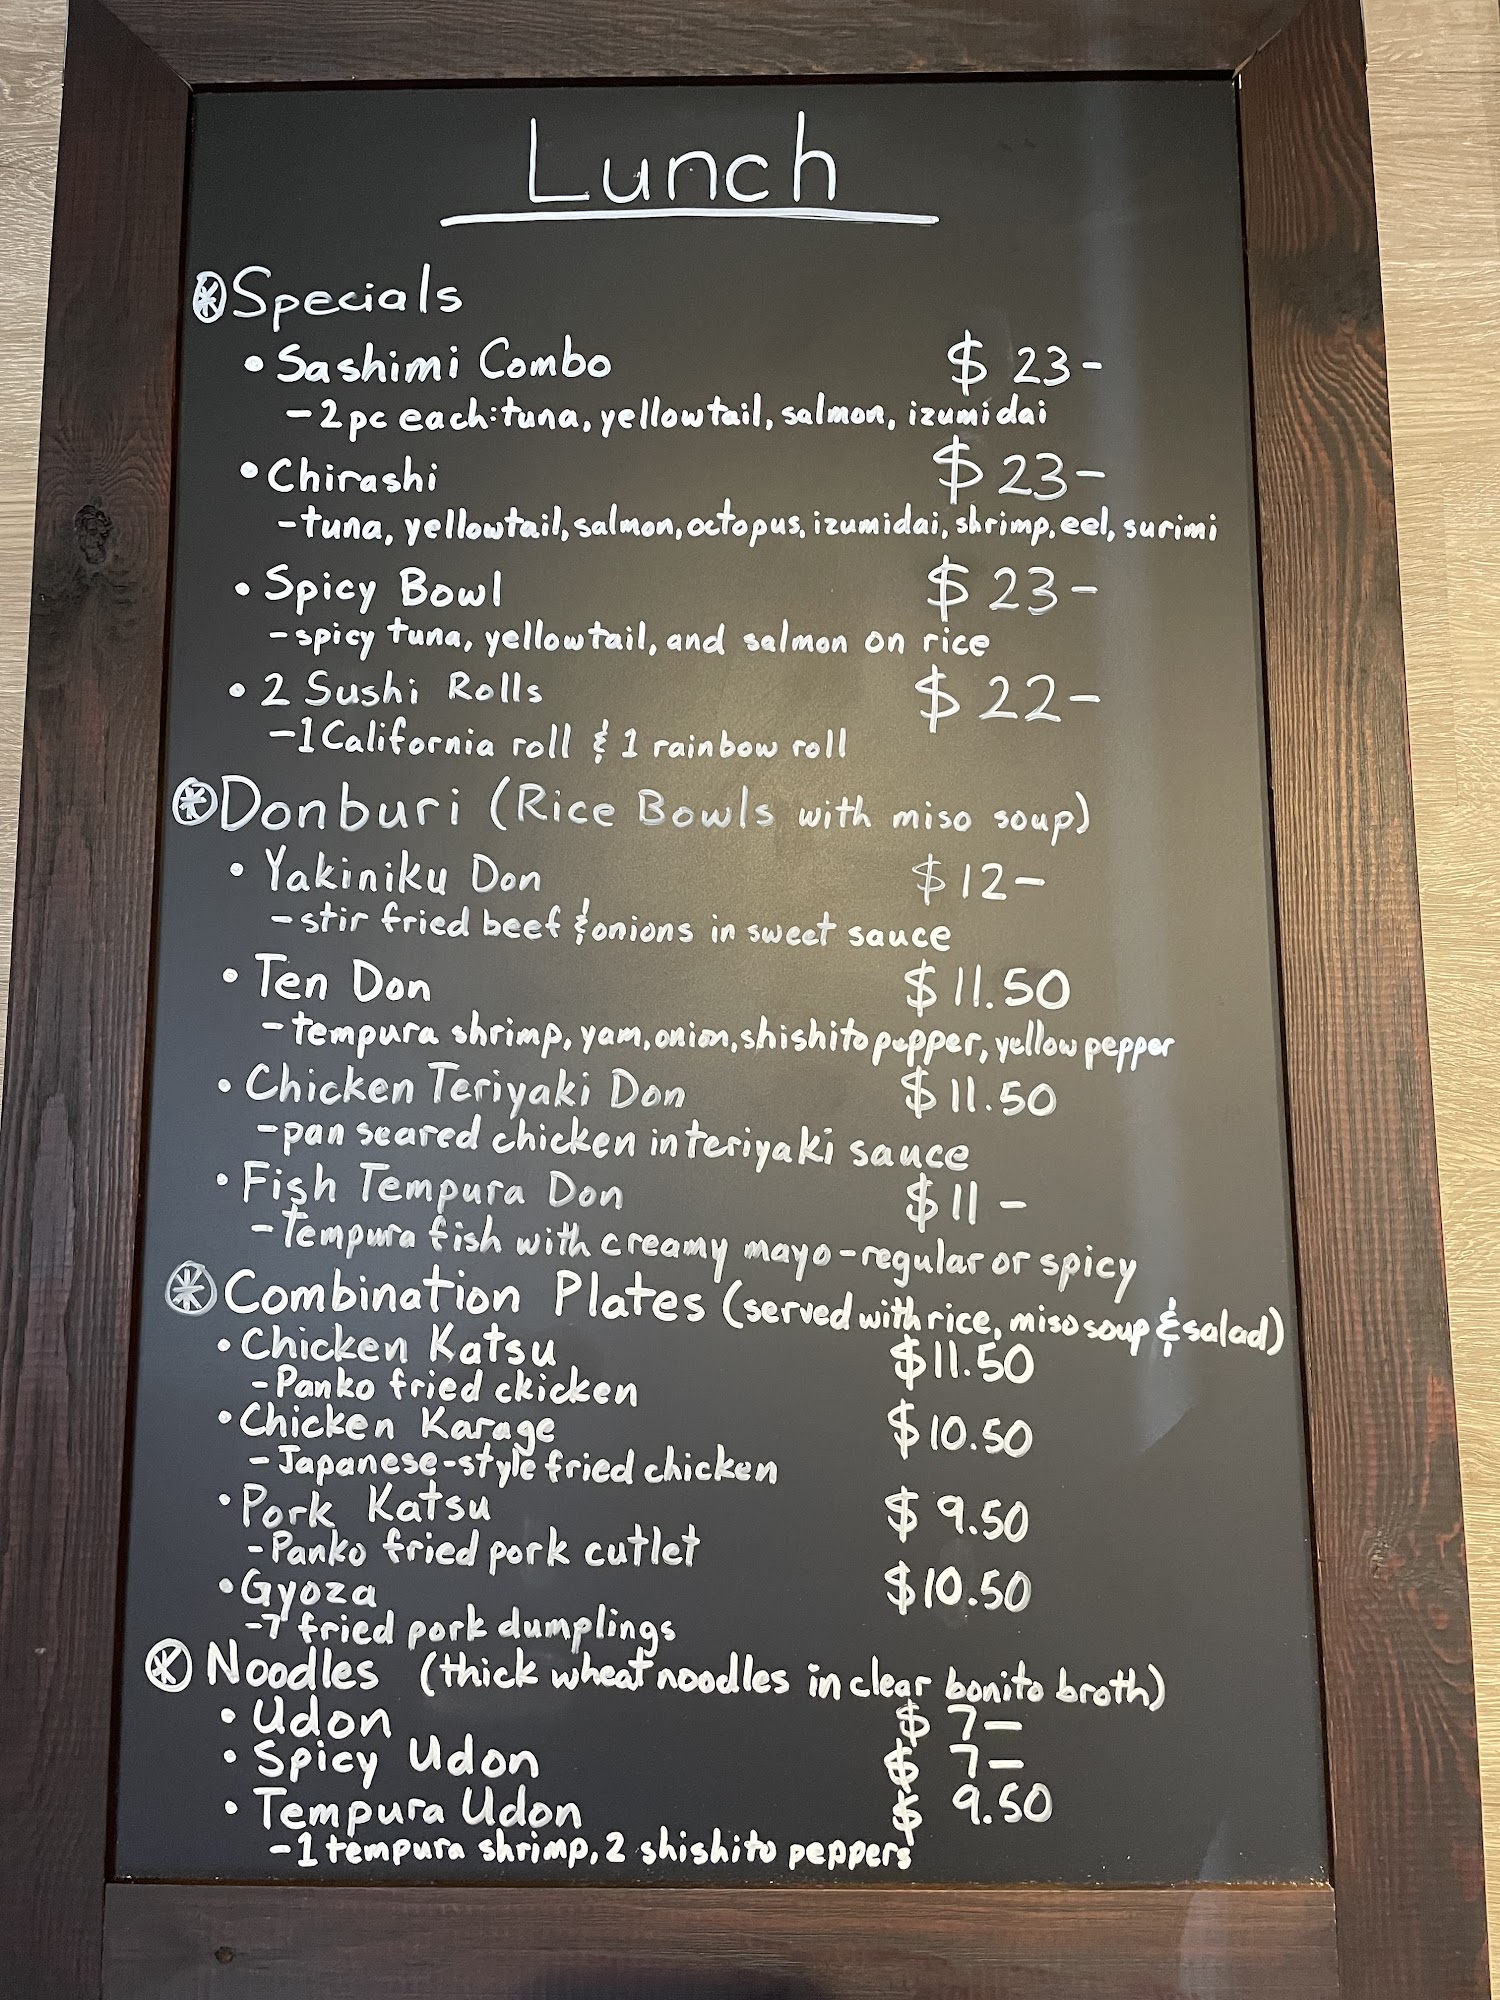 Lunch
Specials
• Sashimi Combo $ 23-
- 2 pc each: tuna, yellowtail, salmon, izumidai
• Chirashi $ 23-
- tuna, yellowtail, salmon, octopus, izumidai, shrimp, eel, surimi
• Spicy Bowl $ 23-
- spicy tuna, yellowtail, and salmon on rice
• 2 Sushi Rolls $ 22-
- 1 California roll & 1 rainbow roll
Donburi (Rice Bowls with miso soup)
• Yakiniku Don $ 12-
- stir fried beef & onions in sweet sauce
• Ten Don $ 11.50
- tempura shrimp, yam, onion, shishito pepper, yellow pepper
• Chicken Teriyaki Don $ 11.50
- pan seared chicken in teriyaki sauce
• Fish Tempura Don $ 11-
- Tempura fish with creamy mayo - regular or spicy
Combination Plates (served with rice, miso soup & salad)
• Chicken Katsu $ 11.50
- Panko fried ckicken
• Chicken Karage $ 10.50
- Japanese-style fried chicken
• Pork Katsu $ 9.50
- Panko fried pork cutlet
• Gyoza $ 10.50
- 7 fried pork dumplings
Noodles (thick wheat noodles in clear bonito broth)
• Udon $ 7-
• Spicy Udon $ 7-
• Tempura Udon $ 9.50
- 1 tempura shrimp, 2 shishito peppers